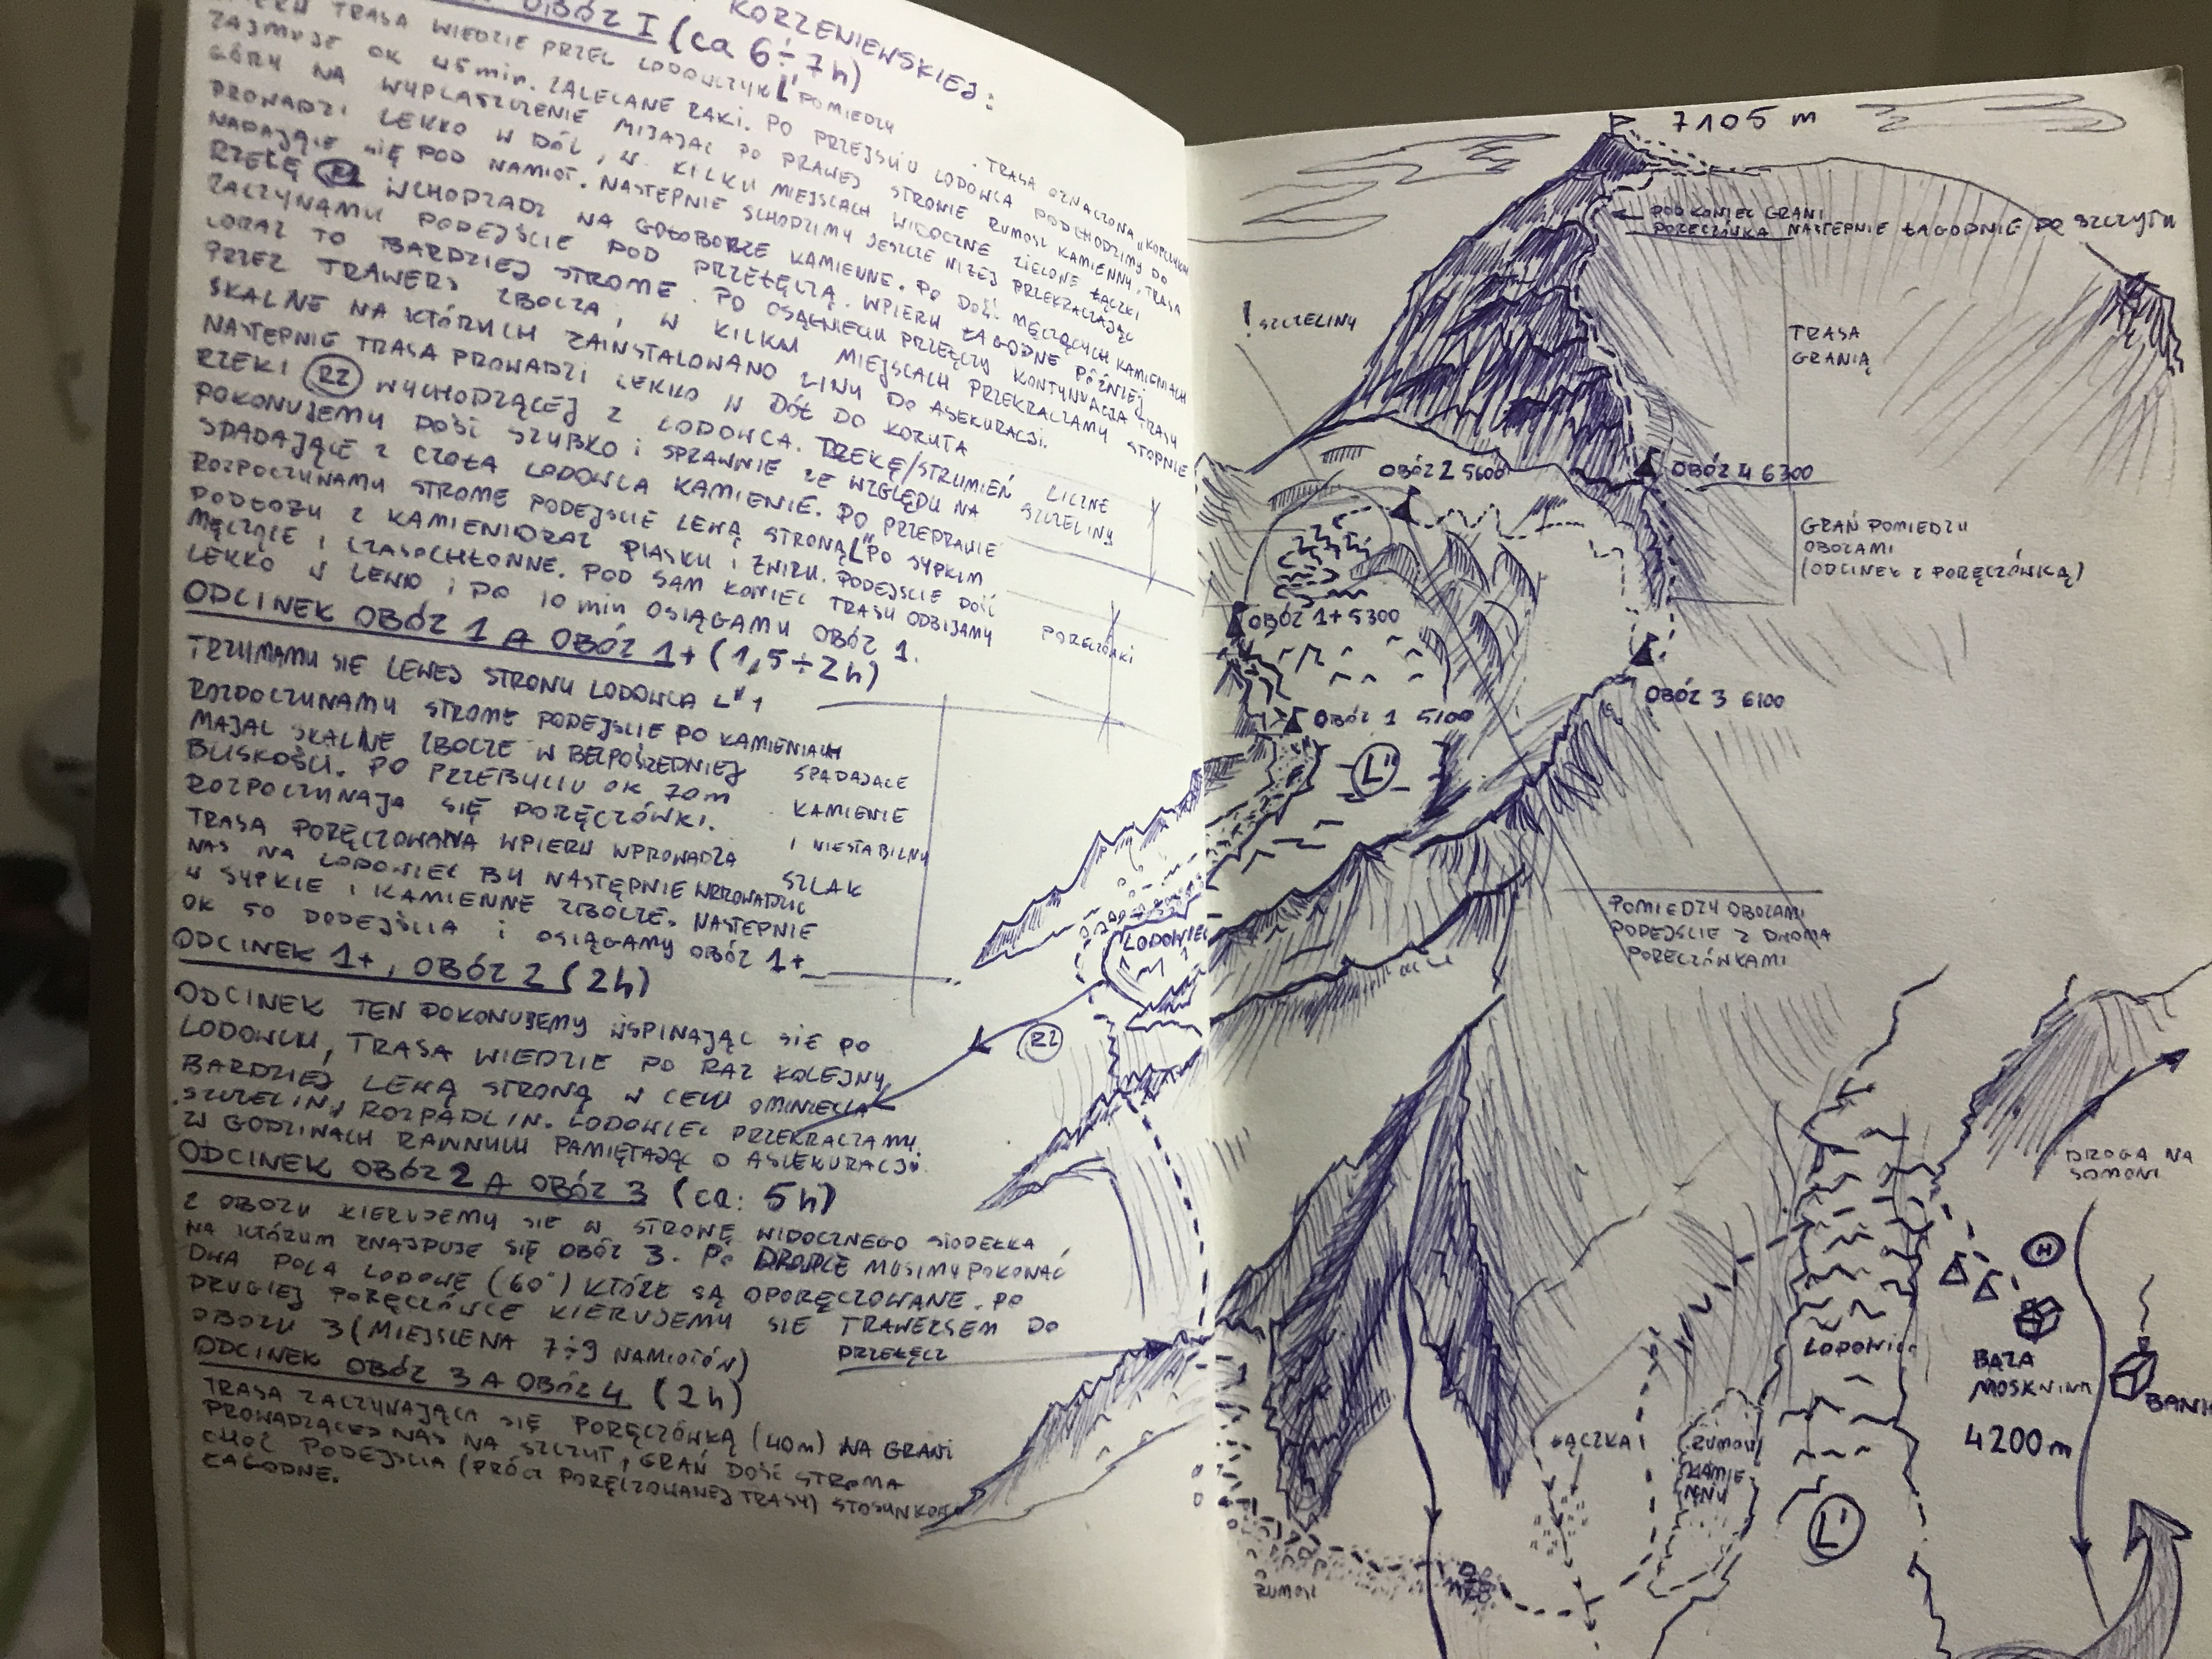 KORZENIEWSKIEJ:
OBÓZ I (ca 6÷7h)
TRASA WIEDZIE PRZEZ LODOWCZYK L' POMIEDZY
ZAJMUJE OK 45 min. ZALECANE RAKI. PO PRZEJSCIU LODOWCA PODCHODZIMY DO
GÓRY NA WYPŁASZCZENIE MIJAJAC PO PRAWEJ STRONIE RUMOSZ KAMIENNY. TRASA
PROWADZI LEKKO W DÓŁ, W KILKU MIEJSCACH WIDOCZNE ZIELONE ŁĄCZKI
NADAJĄCE SIĘ POD NAMIOT. NASTEPNIE SCHODZIMY JESZCZE NIŻEJ PRZEKRACZAJĄC
RZEKĘ WCHODZĄC NA GOŁOBORZE KAMIENNE. PO DOŚĆ MĘCZĄCYCH KAMIENIACH
ZACZYNAMY PODEJŚCIE POD PRZEŁĘCZĄ. WPIERW ŁAGODNE PÓŹNIEJ
CORAZ TO BARDZIEJ STROME. PO OSĄGNIECIU PRZEŁĘCZY KONTYNUACJA TRASY
PRZEZ TRAWERS ZBOCZA, W KILKU MIEJSCACH PRZEKRACZAMY STOPNIE
SKALNE NA KTÓRYCH ZAINSTALOWANO LINY DO ASEKURACJI.
NASTEPNIE TRASA PROWADZI LEKKO W DÓŁ DO KORYTA
RZEKI R2 WYCHODZĄCEJ Z LODOWCA. RZEKĘ/STRUMIEŃ
POKONUJEMY DOŚĆ SZYBKO I SPRAWNIE ZE WZGLĘDU NA
SPADAJĄCE Z CZOŁA LODOWCA KAMIENIE. PO PRZEPRAWIE
ROZPOCZYNAMY STROME PODEJSCIE LEWĄ STRONĄ L" PO SYPKIM
PODŁOŻU Z KAMIENI ORAZ PIASKU I ŻWIRU. PODEJSCIE DOŚĆ
MĘCZĄCE I CZASOCHŁONNE. POD SAM KONIEC TRASY ODBIJAMY
LEKKO W LEWO I PO 10 min OSIĄGAMY OBÓZ 1.
LICZNE
SZCZELINY
PORĘCZÓWKI
ODCINEK OBÓZ 1 A OBÓZ 1+ (1,5÷2h)
TRZYMAMY SIE LEWEJ STRONY LODOWCA L" 1
ROZPOCZYNAMY STROME PODEJSCIE PO KAMIENIACH
MAJAC SKALNE ZBOCZE W BEZPOŚREDNIEJ
BLISKOŚCI. PO PRZEBYCIU OK 70m
ROZPOCZYNAJA SIĘ PORĘCZÓWKI.
TRASA PORĘCZOWANA WPIERW WPROWADZA
NAS NA LODOWIEC BY NASTĘPNIE WPROWADZIC
W SYPKIE I KAMIENNE ZBOCZE. NASTEPNIE
OK 50 PODEJŚCIA I OSIĄGAMY OBÓZ 1+
SPADAJACE
KAMIENIE
I NIESTABILNY
SZLAK
ODCINEK 1+, OBÓZ 2 (2h)
ODCINEK TEN POKONUJEMY WSPINAJĄC SIE PO
LODOWCU, TRASA WIEDZIE PO RAZ KOLEJNY
BARDZIEJ LEWĄ STRONĄ W CELU OMINIECIA
SZCZELIN, ROZPADLIN. LODOWIEC PRZEKRACZAMY
W GODZINACH RANNYCH PAMIĘTAJĄC O ASEKURACJI.
ODCINEK OBÓZ 2 A OBÓZ 3 (ca: 5h)
Z OBOZU KIERUJEMY SIE W STRONĘ WIDOCZNEGO SIODEŁKA
NA KTÓRYM ZNAJDUJE SIĘ OBÓZ 3. PO DRODZE MUSIMY POKONAĆ
DWA POLA LODOWE (60°) KTÓRE SĄ OPORĘCZOWANE. PO
DRUGIEJ PORĘCZÓWCE KIERUJEMY SIE TRAWERSEM DO
OBOZU 3 (MIEJSCE NA 7÷9 NAMIOTÓW)
PRZEŁĘCZ
ODCINEK OBÓZ 3 A OBÓZ 4 (2h)
TRASA ZACZYNAJĄCA SIĘ PORĘCZÓWKĄ (40m) NA GRANI
PROWADZĄCEJ NAS NA SZCZYT, GRAŃ DOŚĆ STROMA
CHOĆ PODEJSCIA (PRÓCZ PORĘCZOWANEJ TRASY) STOSUNKOWO
ŁAGODNE.
7105 m
POD KONIEC GRANI
PORĘCZÓWKA NASTEPNIE ŁAGODNIE DO SZCZYTU
! SZCZELINY
TRASA
GRANIĄ
OBÓZ 2 5600
OBÓZ 4 6300
GRAŃ POMIEDZY
OBOZAMI
(ODCINEK Z PORĘCZÓWKĄ)
OBÓZ 1+ 5300
OBÓZ 3 6100
OBÓZ 1 5100
L"
POMIEDZY OBOZAMI
PODEJSCIE Z DWOMA
PORĘCZÓWKAMI
LODOWIEC
R2
DROGA NA
SOMONI
H
LODOWIEC
BAZA
MOSKVINA
4200 m
BANIA
ŁĄCZKA
RUMOSZ
KAMIENNY
L'
RUMOSZ